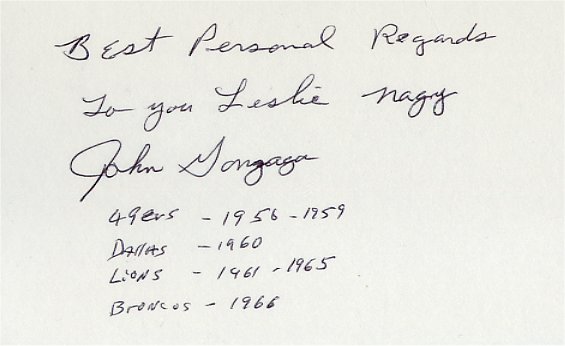 Best Personal Regards
To you Leslie Nagy
John Gonzaga
49ers - 1956 - 1959
Dallas - 1960
Lions - 1961 - 1965
Broncos - 1966